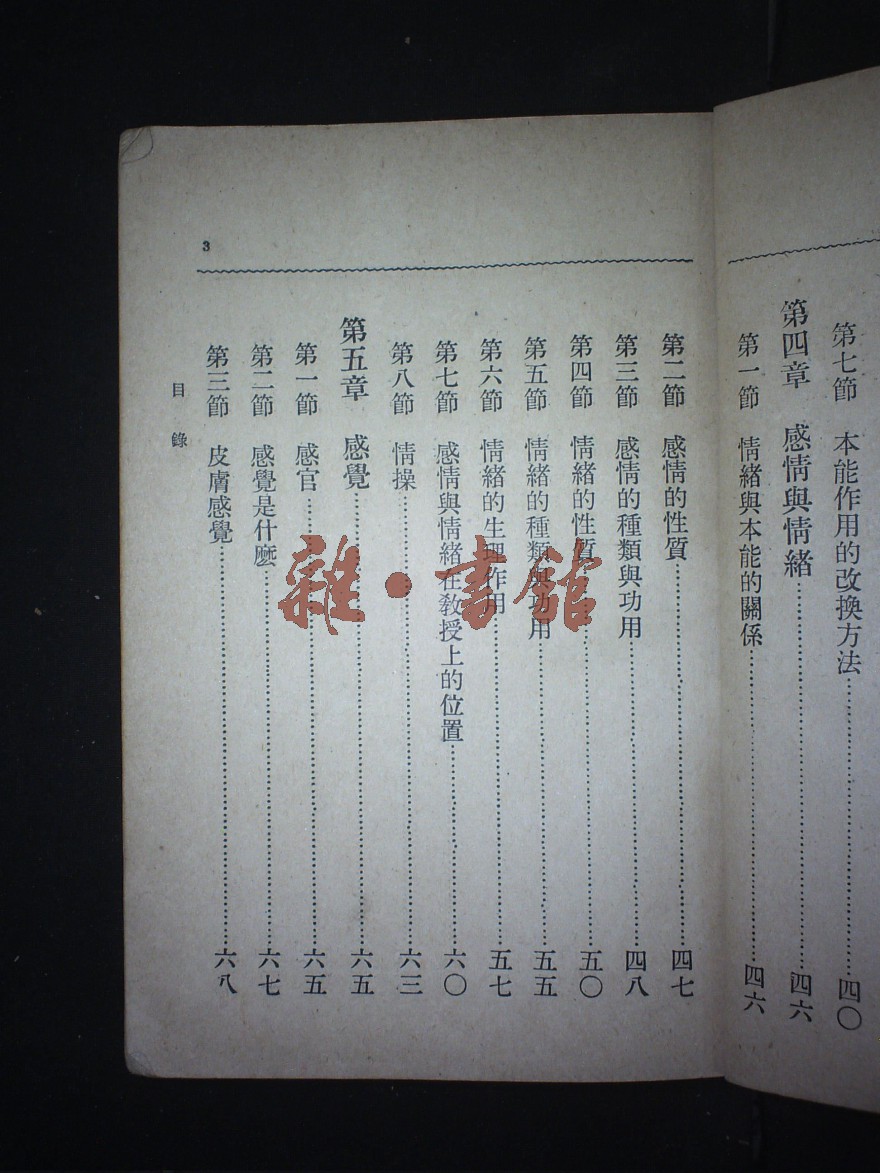 第七節　本能作用的改換方法……四〇
第四章　感情與情緒……四六
第一節　情緒與本能的關係……四六
第二節　感情的性質……四七
第三節　感情的種類與功用……四八
第四節　情緒的性質……五〇
第五節　情緒的種類與功用……五五
第六節　情緒的生理作用……五七
第七節　感情與情緒在敎授上的位置……六〇
第八節　情操……六三
第五章　感覺……六五
第一節　感官……六五
第二節　感覺是什麼……六七
第三節　皮膚感覺……六八
目錄
3
雜·書館